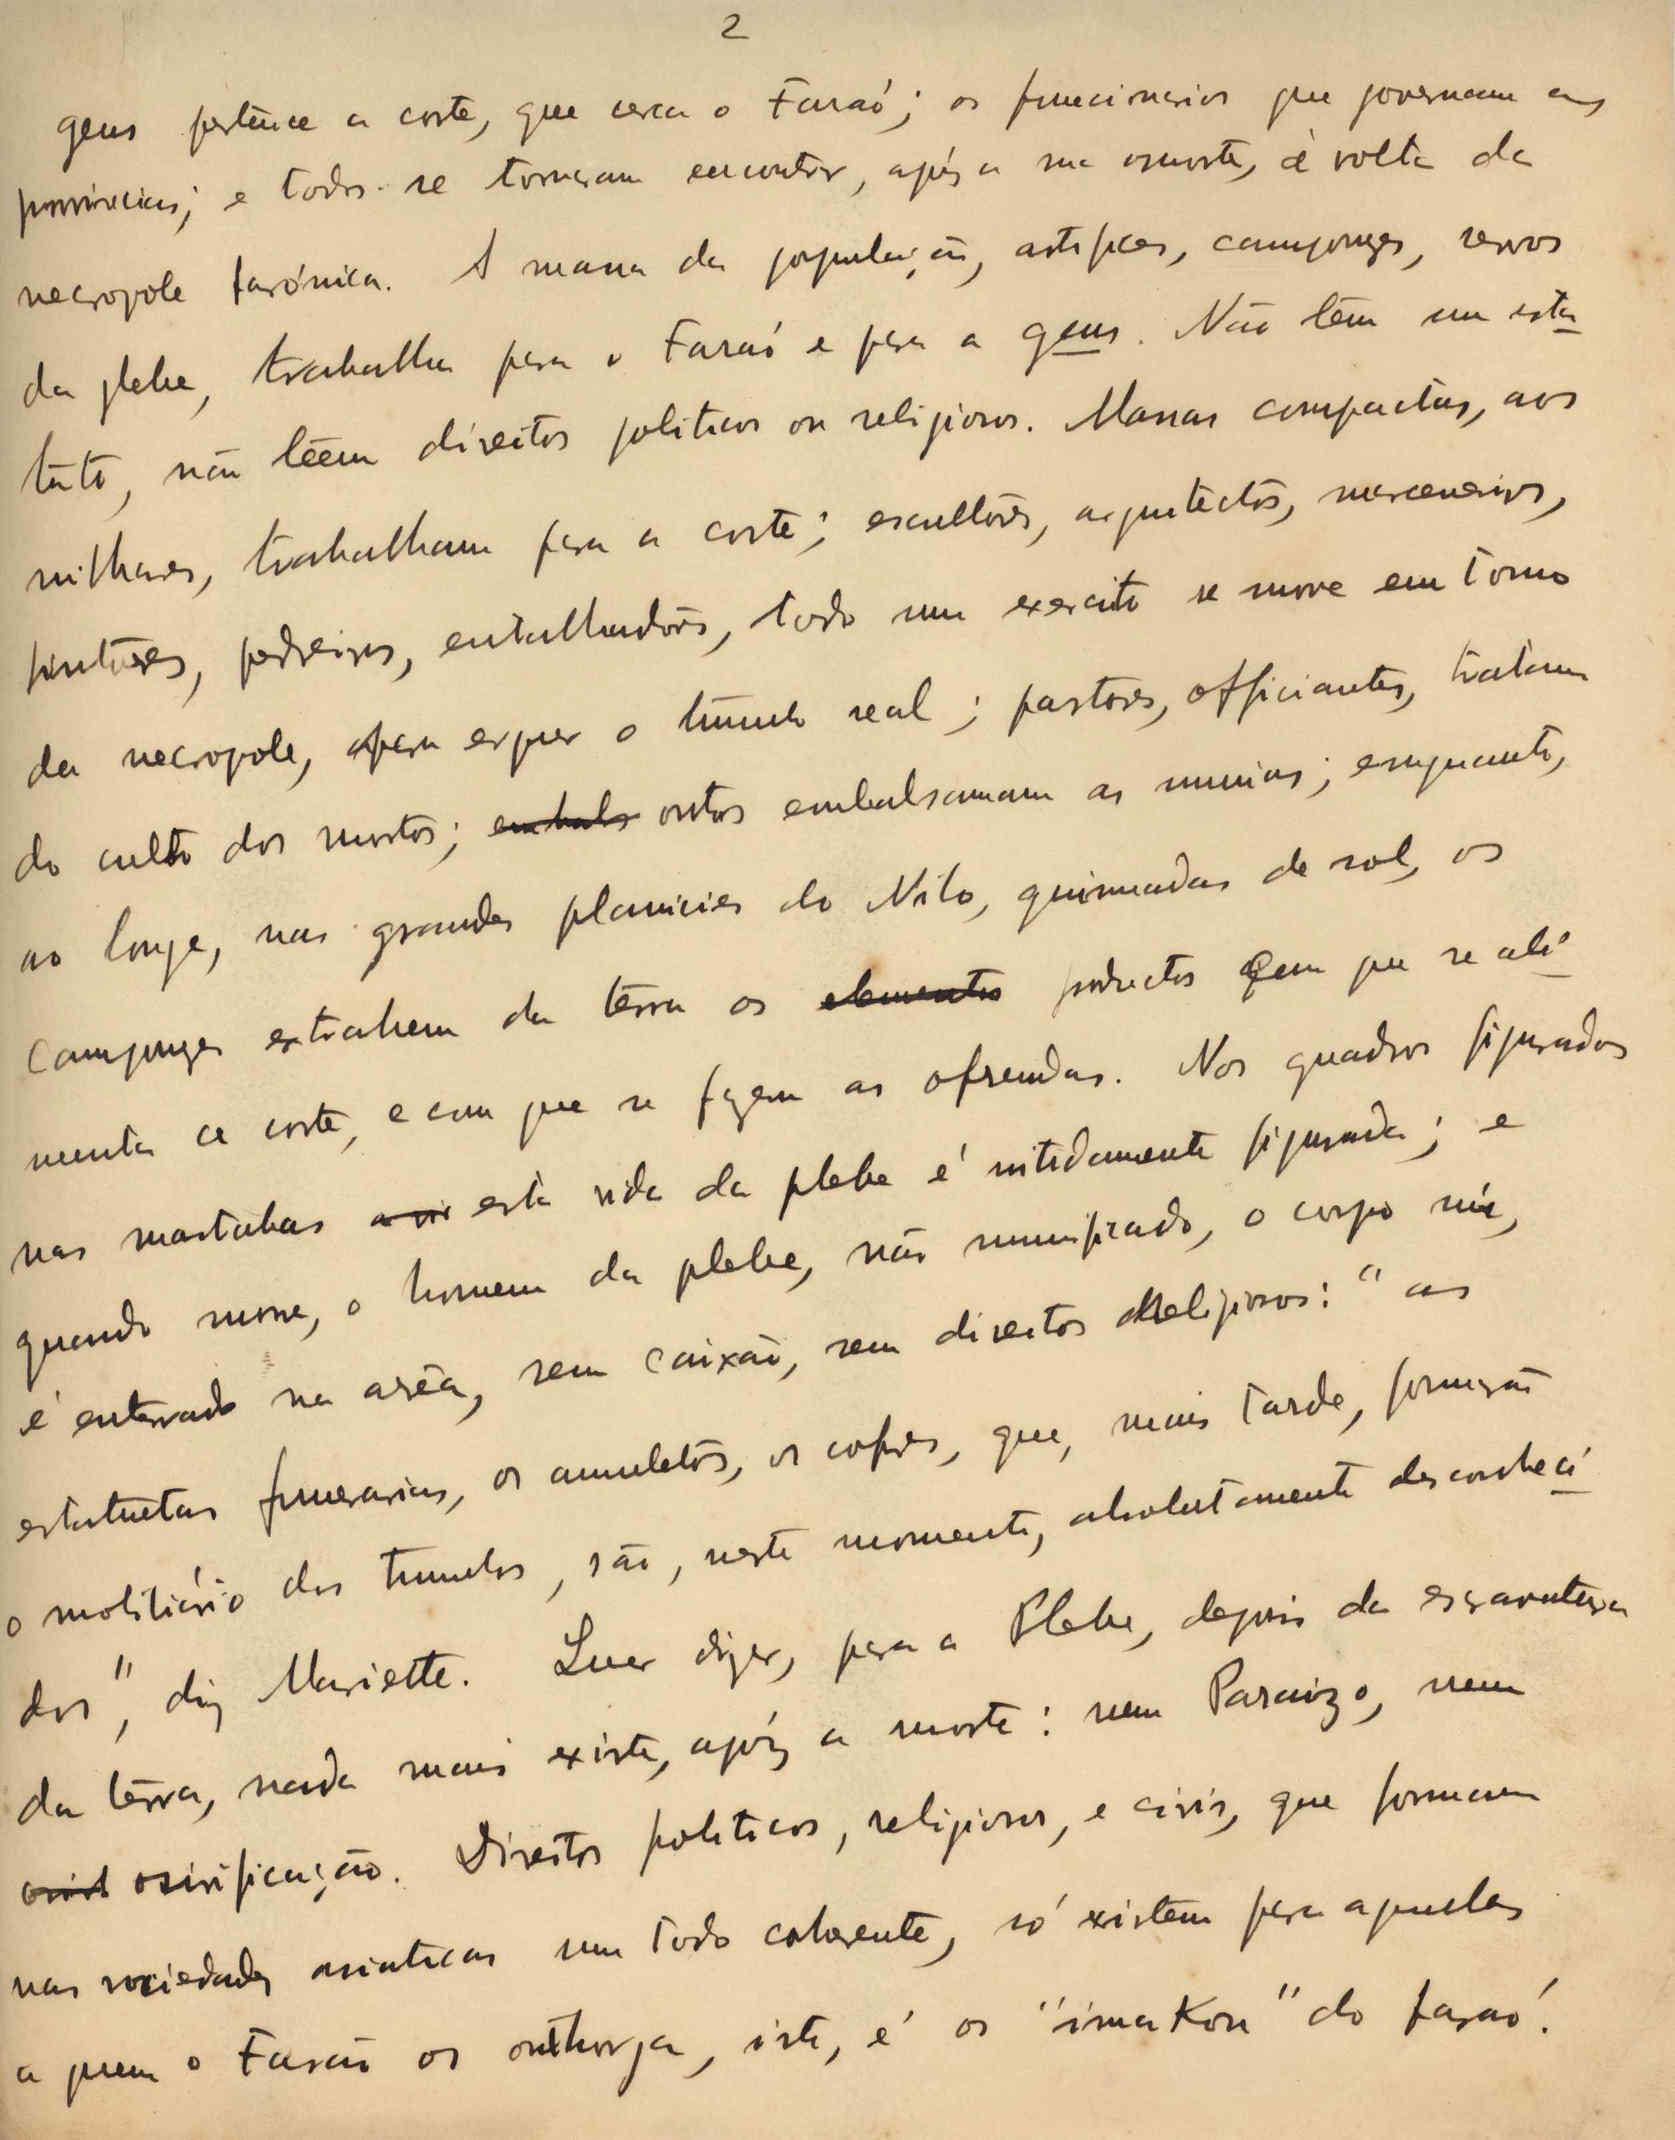 2
gens pertence a corte, que cerca o Faraó; os funcionarios que governam as
provincias; e todos se tornaram encontrar, após a sua morte, á volta da
necropole faraónica. A massa da população, artifices, camponezes, servos
da plebe, trabalha para o Faraó e para a gens. Não têm um esta
tuto, não têem direitos politicos ou religiosos. Massas compactas, aos
milhares, trabalham para a corte; escultôres, arquitectos, marceneiros,
pintôres, pedreiros, entalhadôres, todo um exercito se move em torno
da necropole, para erguer o túmulo real; pastores, officiantes, tratam
do culto dos mortos; embals outros embalsamam as mumias; emquanto,
ao longe, nas grandes planicies do Nilo, queimadas de sol, os
camponezes extrahem da têrra os elementos productos com que se ali
menta a corte, e com que se fazem as ofrendas. Nos quadros figurados
nas mastabas a vi esta vida da plebe é nitidamente figurada; e
quando morre, o homem da plebe, não mumificado, o corpo nú,
é enterrado na arêa, sem caixão, sem direitos religiosos: "as
estatuetas funerarias, os amuletos, os cofres, que, mais tarde, formarão
o mobiliário dos tumulos, são, neste momento, absolutamente desconheci
dos", diz Mariette. Quer dizer, para a Plebe, depois da escravatura
da têrra, nada mais existe, após a morte: nem Paraizo, nem
osirificação. Direitos politicos, religiosos, e civis, que formam
nas sociedades asiaticas um todo coherente, só existem para aquelles
a quem o Faraó os outhorga, isto, é os "imakou" do faraó.